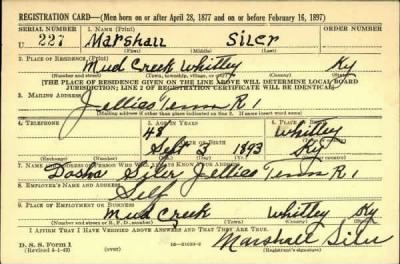 REGISTRATION CARD—(Men born on or after April 28, 1877 and on or before February 16, 1897)
SERIAL NUMBER 1. NAME (Print) ORDER NUMBER
U 227 Marshall Siler
(First) (Middle) (Last)
2. PLACE OF RESIDENCE (Print)
Mud Creek Whitley Ky
(Number and street) (Town, township, village, or city) (County) (State)
[THE PLACE OF RESIDENCE GIVEN ON THE LINE ABOVE WILL DETERMINE LOCAL BOARD
JURISDICTION; LINE 2 OF REGISTRATION CERTIFICATE WILL BE IDENTICAL]
3. MAILING ADDRESS
Jellico Tenn R 1
[Mailing address if other than place indicated on line 2. If same insert word same]
4. TELEPHONE 5. AGE IN YEARS 6. PLACE OF BIRTH
48 Whitley
DATE OF BIRTH (Town or county)
Sept 3 1893 Ky
(Exchange) (Number) (Mo.) (Day) (Yr.) (State or country)
7. NAME AND ADDRESS OF PERSON WHO WILL ALWAYS KNOW YOUR ADDRESS
Dosha Siler Jellico Tenn R 1
8. EMPLOYER'S NAME AND ADDRESS
Self
9. PLACE OF EMPLOYMENT OR BUSINESS
Mud Creek Whitley Ky
(Number and street or R. F. D. number) (Town) (County) (State)
I AFFIRM THAT I HAVE VERIFIED ABOVE ANSWERS AND THAT THEY ARE TRUE.
D. S. S. Form 1
(Revised 4-1-42) (over) Marshall Siler